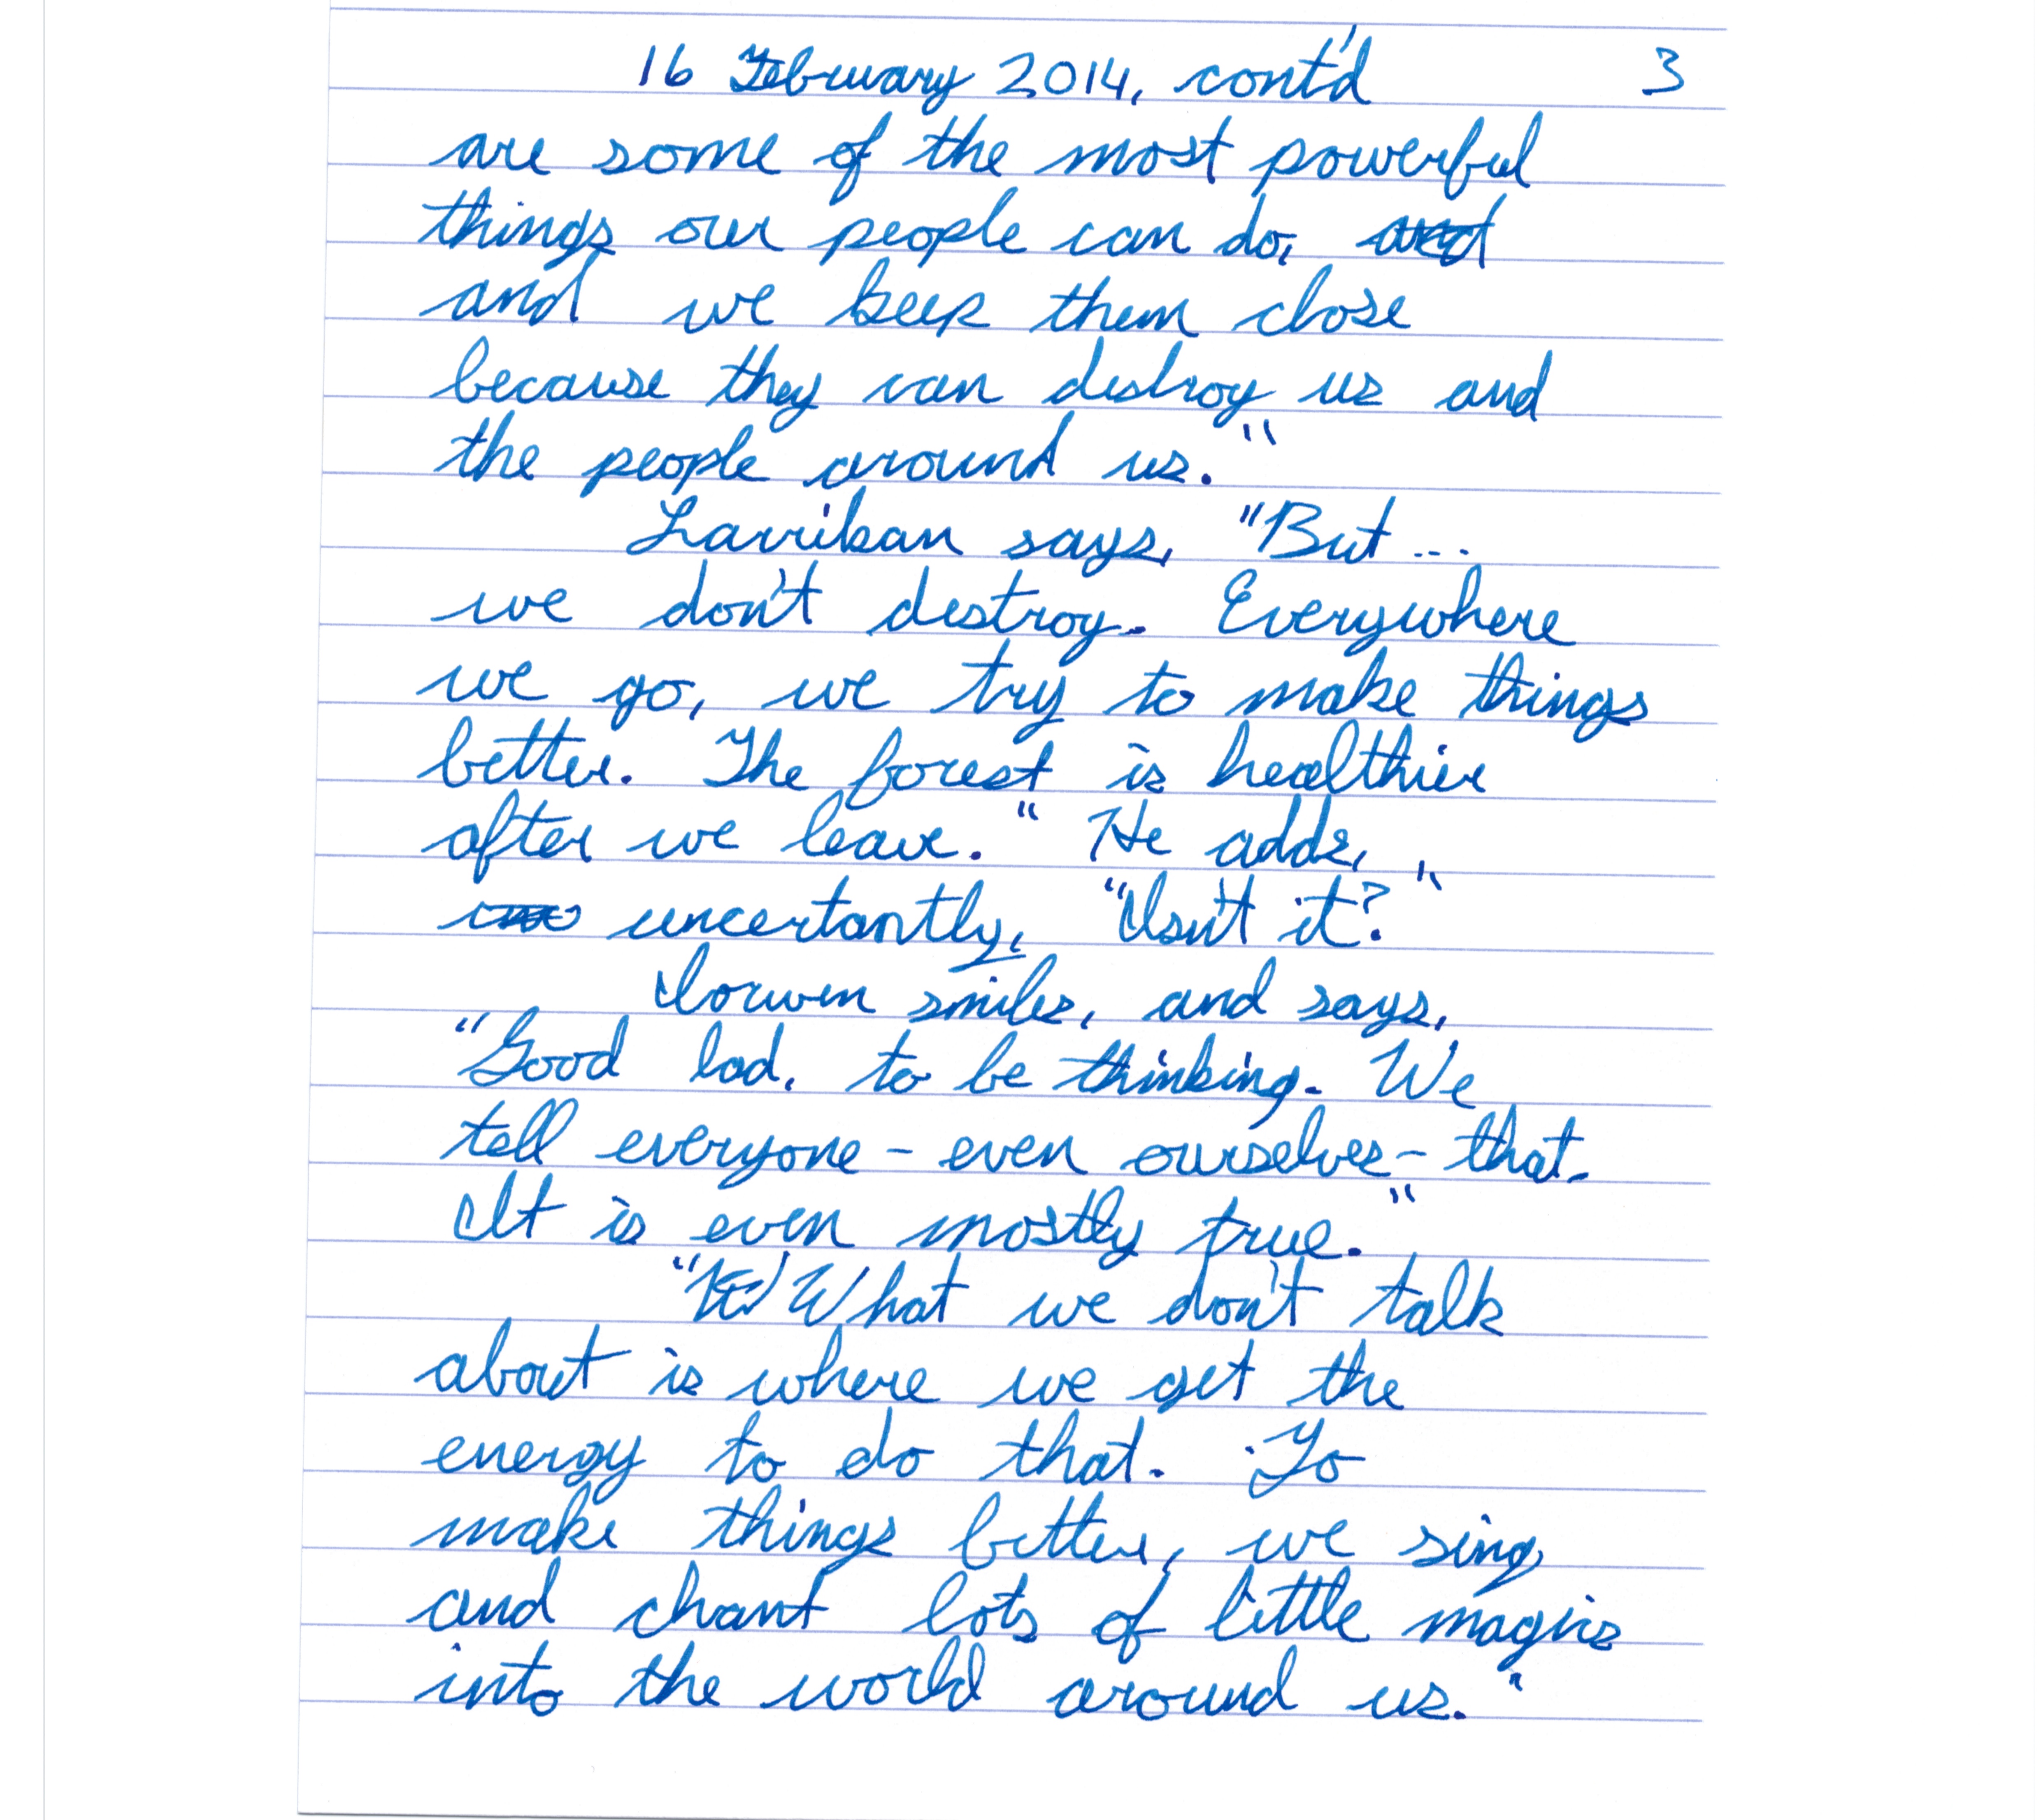 16 February 2014, cont'd 3
are some of the most powerful
things our people can do, and
and we keep them close
because they can destroy us and
the people around us."
Lavikan says, "But...
we don't destroy. Everywhere
we go, we try to make things
better. The forest is healthier
after we leave." He adds,
uncertantly, "Isn't it?"
Iorwen smiles, and says,
"Good lad, to be thinking. We
tell everyone - even ourselves - that.
It is even mostly true."
"What we don't talk
about is where we get the
energy to do that. To
make things better, we sing
and chant lots of little magics
into the world around us."